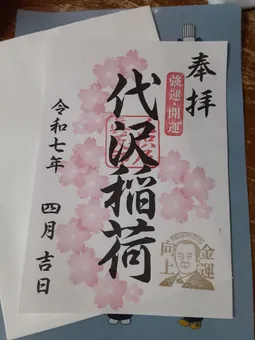 奉拝
強運・開運
代沢稲荷
金運
向上
令和七年
四月吉日